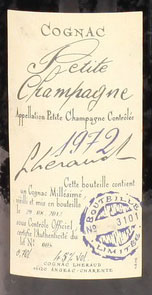 COGNAC
Petite
Champagne
Appellation Petite Champagne Contrôlée
1972
Lheraud
Cette bouteille contient
un Cognac Millésimé
vieilli et mis en bouteille
le
sous Contrôle Officiel
certifié l'Authenticité du
Lot N°
BOUTEILLE
N° 3101
LIMITÉE
0,70l 48% Vol
COGNAC LHERAUD
16120 ANGEAC-CHARENTE